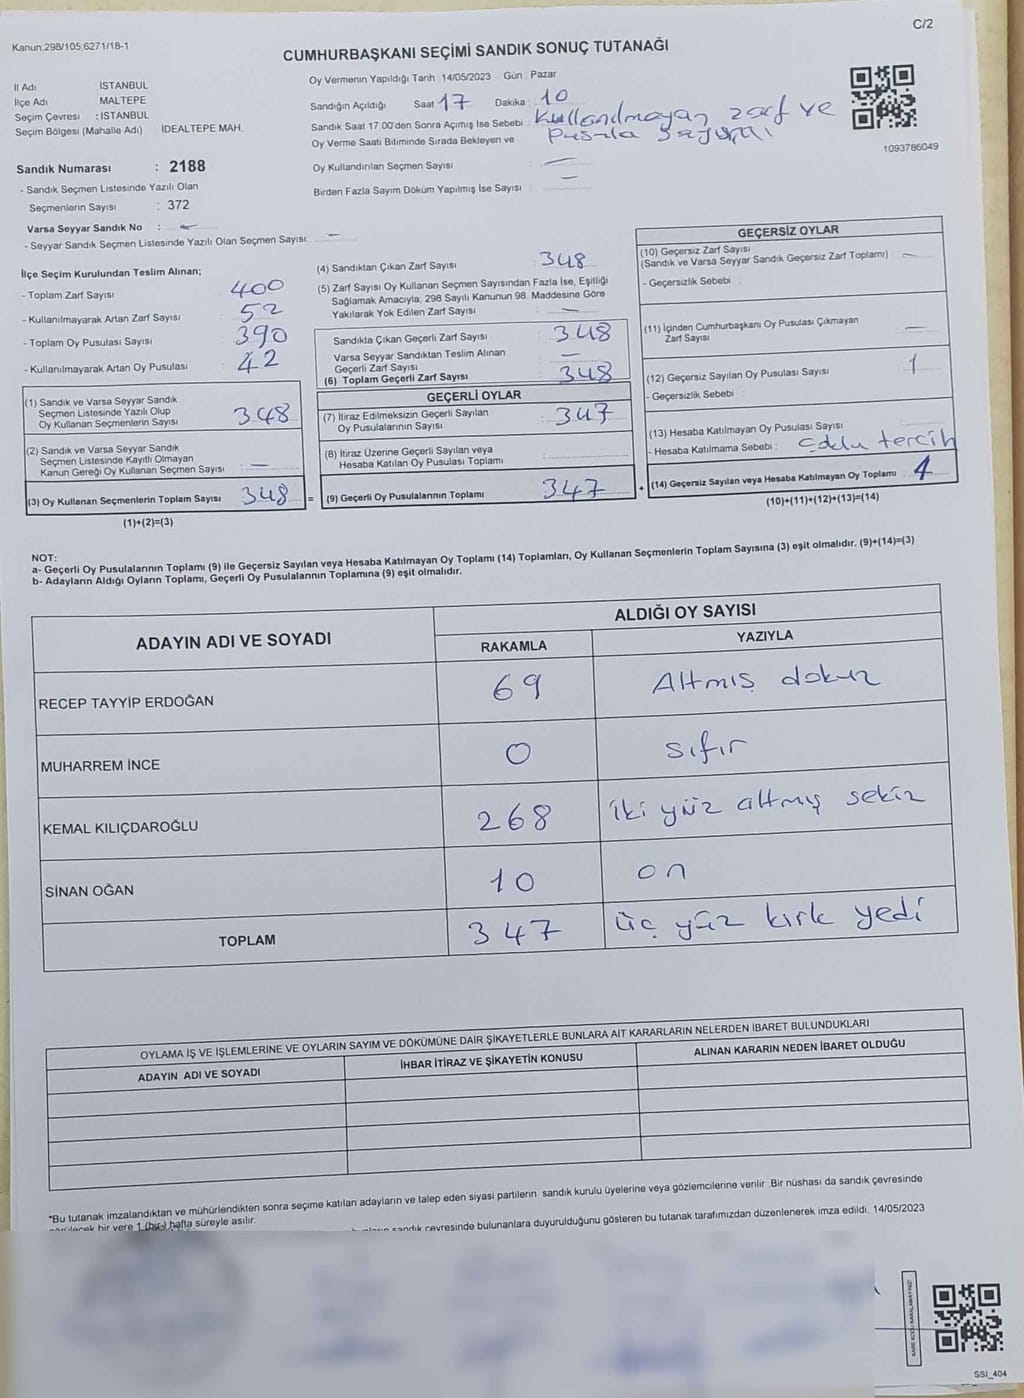 C/2
Kanun:298/105,6271/18-1
CUMHURBAŞKANI SEÇİMİ SANDIK SONUÇ TUTANAĞI
İl Adı : İSTANBUL
İlçe Adı MALTEPE
Seçim Çevresi : İSTANBUL
Seçim Bölgesi (Mahalle Adı) İDEALTEPE MAH.
Oy Vermenin Yapıldığı Tarih :14/05/2023 Gün : Pazar
Sandığın Açıldığı Saat 17 Dakika : 10
Sandık Saat 17:00'den Sonra Açımış İse Sebebi : Kullanılmayan zarf ve
Oy Verme Saati Bitiminde Sırada Bekleyen ve pusula sayımı
Oy Kullandırılan Seçmen Sayısı : —
Birden Fazla Sayım Döküm Yapılmış İse Sayısı : —
1093786049
Sandık Numarası : 2188
- Sandık Seçmen Listesinde Yazılı Olan
Seçmenlerin Sayısı : 372
Varsa Seyyar Sandık No : —
- Seyyar Sandık Seçmen Listesinde Yazılı Olan Seçmen Sayısı: —
İlçe Seçim Kurulundan Teslim Alınan;
- Toplam Zarf Sayısı : 400
- Kullanılmayarak Artan Zarf Sayısı : 52
- Toplam Oy Pusulası Sayısı : 390
- Kullanılmayarak Artan Oy Pusulası : 42
(1) Sandık ve Varsa Seyyar Sandık
Seçmen Listesinde Yazılı Olup
Oy Kullanan Seçmenlerin Sayısı : 348
(2) Sandık ve Varsa Seyyar Sandık
Seçmen Listesinde Kayıtlı Olmayan
Kanun Gereği Oy Kullanan Seçmen Sayısı : —
(3) Oy Kullanan Seçmenlerin Toplam Sayısı : 348 =
(1)+(2)=(3)
(4) Sandıktan Çıkan Zarf Sayısı : 348
(5) Zarf Sayısı Oy Kullanan Seçmen Sayısından Fazla İse, Eşitliği
Sağlamak Amacıyla, 298 Sayılı Kanunun 98. Maddesine Göre
Yakılarak Yok Edilen Zarf Sayısı : —
Sandıkta Çıkan Geçerli Zarf Sayısı : 348
Varsa Seyyar Sandıktan Teslim Alınan
Geçerli Zarf Sayısı : —
(6) Toplam Geçerli Zarf Sayısı : 348
GEÇERLİ OYLAR
(7) İtiraz Edilmeksizin Geçerli Sayılan
Oy Pusulalarının Sayısı : 347
(8) İtiraz Üzerine Geçerli Sayılan veya
Hesaba Katılan Oy Pusulası Toplamı :
(9) Geçerli Oy Pusulalarının Toplamı : 347 +
GEÇERSİZ OYLAR
(10) Geçersiz Zarf Sayısı
(Sandık ve Varsa Seyyar Sandık Geçersiz Zarf Toplamı) : —
- Geçersizlik Sebebi :
(11) İçinden Cumhurbaşkanı Oy Pusulası Çıkmayan
Zarf Sayısı : —
(12) Geçersiz Sayılan Oy Pusulası Sayısı : 1
- Geçersizlik Sebebi :
(13) Hesaba Katılmayan Oy Pusulası Sayısı :
- Hesaba Katılmama Sebebi : çoklu tercih
(14) Geçersiz Sayılan veya Hesaba Katılmayan Oy Toplamı : 1
(10)+(11)+(12)+(13)=(14)
NOT:
a- Geçerli Oy Pusulalarının Toplamı (9) ile Geçersiz Sayılan veya Hesaba Katılmayan Oy Toplamı (14) Toplamları, Oy Kullanan Seçmenlerin Toplam Sayısına (3) eşit olmalıdır. (9)+(14)=(3)
b- Adayların Aldığı Oyların Toplamı, Geçerli Oy Pusulalarının Toplamına (9) eşit olmalıdır.
ADAYIN ADI VE SOYADI ALDIĞI OY SAYISI
RAKAMLA YAZIYLA
RECEP TAYYİP ERDOĞAN 69 Altmış dokuz
MUHARREM İNCE 0 sıfır
KEMAL KILIÇDAROĞLU 268 iki yüz altmış sekiz
SİNAN OĞAN 10 on
TOPLAM 347 üç yüz kırk yedi
OYLAMA İŞ VE İŞLEMLERİNE VE OYLARIN SAYIM VE DÖKÜMÜNE DAİR ŞİKAYETLERLE BUNLARA AİT KARARLARIN NELERDEN İBARET BULUNDUKLARI
ADAYIN ADI VE SOYADI İHBAR İTİRAZ VE ŞİKAYETİN KONUSU ALINAN KARARIN NEDEN İBARET OLDUĞU
*Bu tutanak imzalandıktan ve mühürlendikten sonra seçime katılan adayların ve talep eden siyasi partilerin sandık kurulu üyelerine veya gözlemcilerine verilir. Bir nüshası da sandık çevresinde
görülecek bir yere 1 (bir) hafta süreyle asılır.
sandık çevresinde bulunanlara duyurulduğunu gösteren bu tutanak tarafımızdan düzenlenerek imza edildi. 14/05/2023
KARE KODU KARALAMAYINIZ!
SSI_404